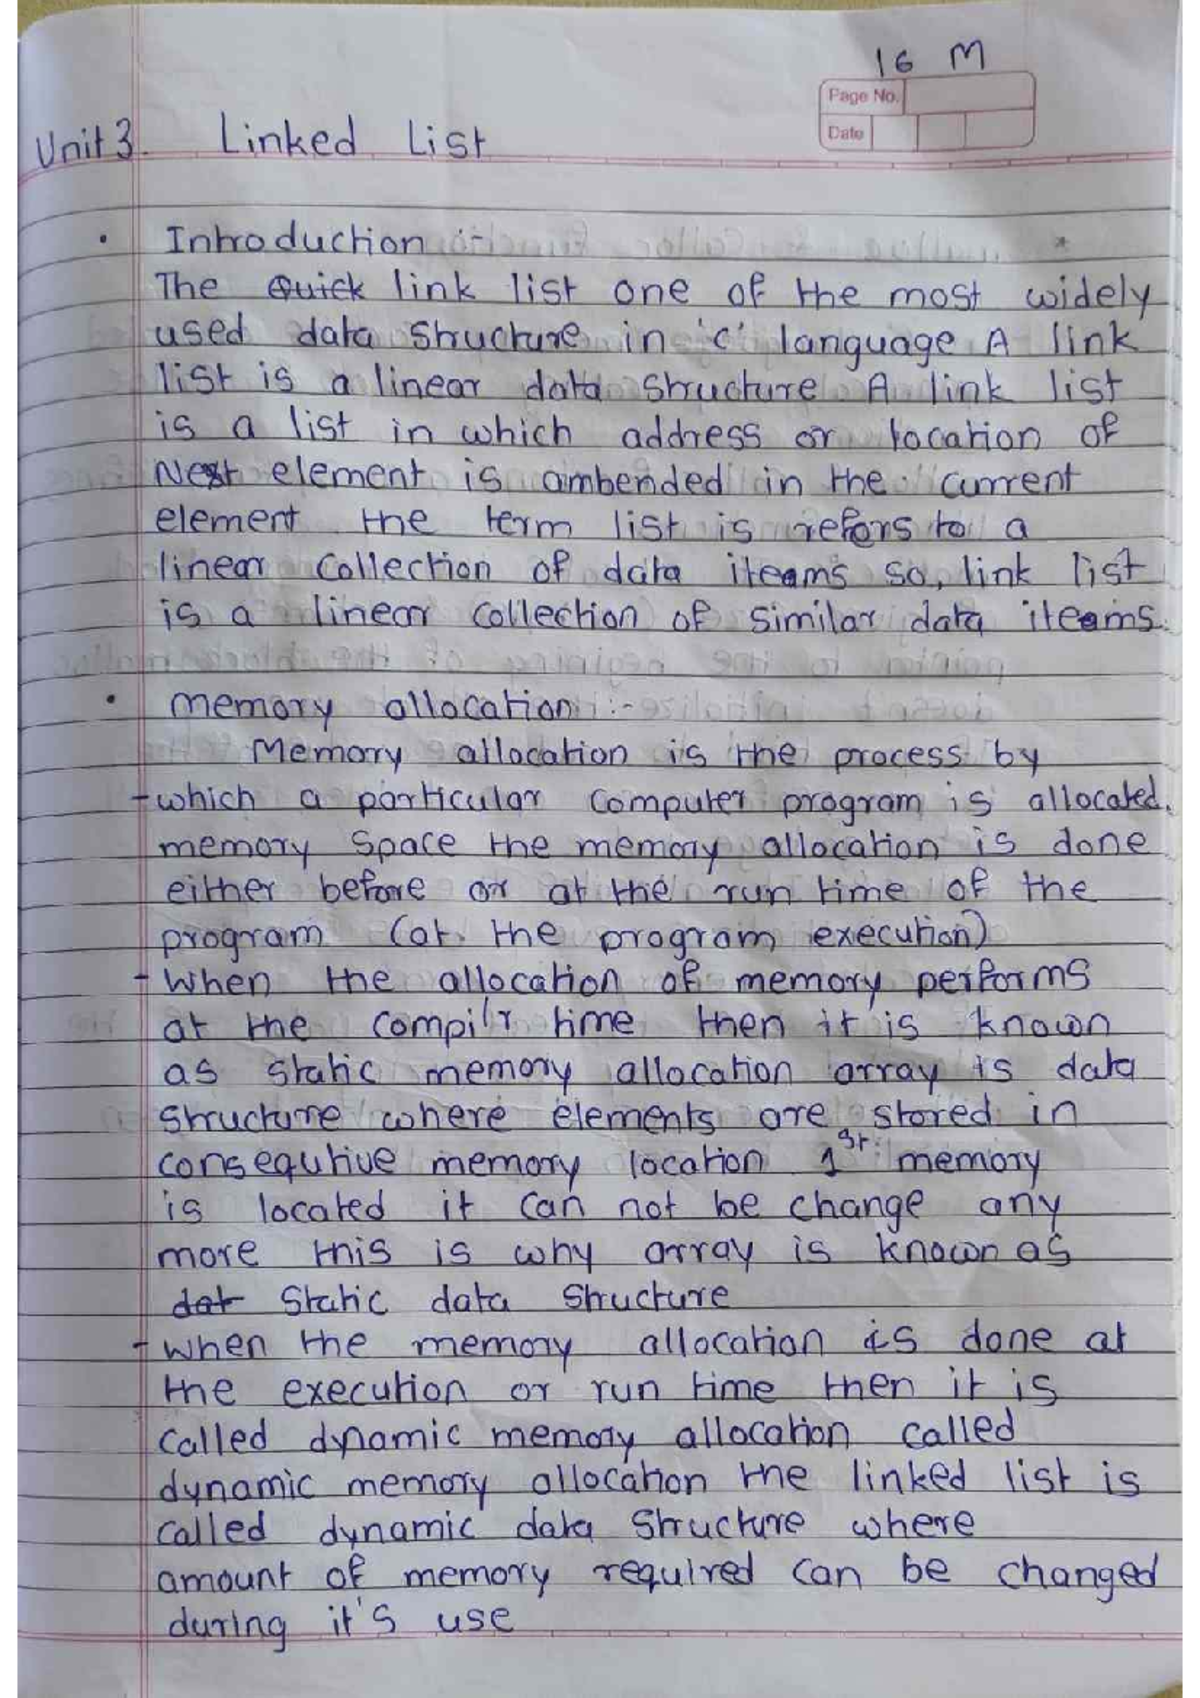 16 M
Page No.
Date
Unit 3. Linked List
• Introduction :-
The Quick link list one of the most widely
used data structure in 'c' language A link
list is a linear data structure A link list
is a list in which address or location of
Next element is ambended in the current
element the term list is refers to a
linear collection of data iteams so, link list
is a linear collection of similar data iteams.
• memory allocation :-
Memory allocation is the process by
- which a particular computer program is allocated.
memory space the memory allocation is done
either before or at the run time of the
program (at the program execution)
- When the allocation of memory performs
at the compilr time then it is known
as static memory allocation array is data
structure where elements are stored in
consequtive memory location 1st memory
is located it can not be change any
more this is why array is known as
dat static data structure
- when the memory allocation is done at
the execution or run time then it is
called dynamic memory allocation called
dynamic memory allocation the linked list is
called dynamic data structure where
amount of memory required can be changed
during it's use